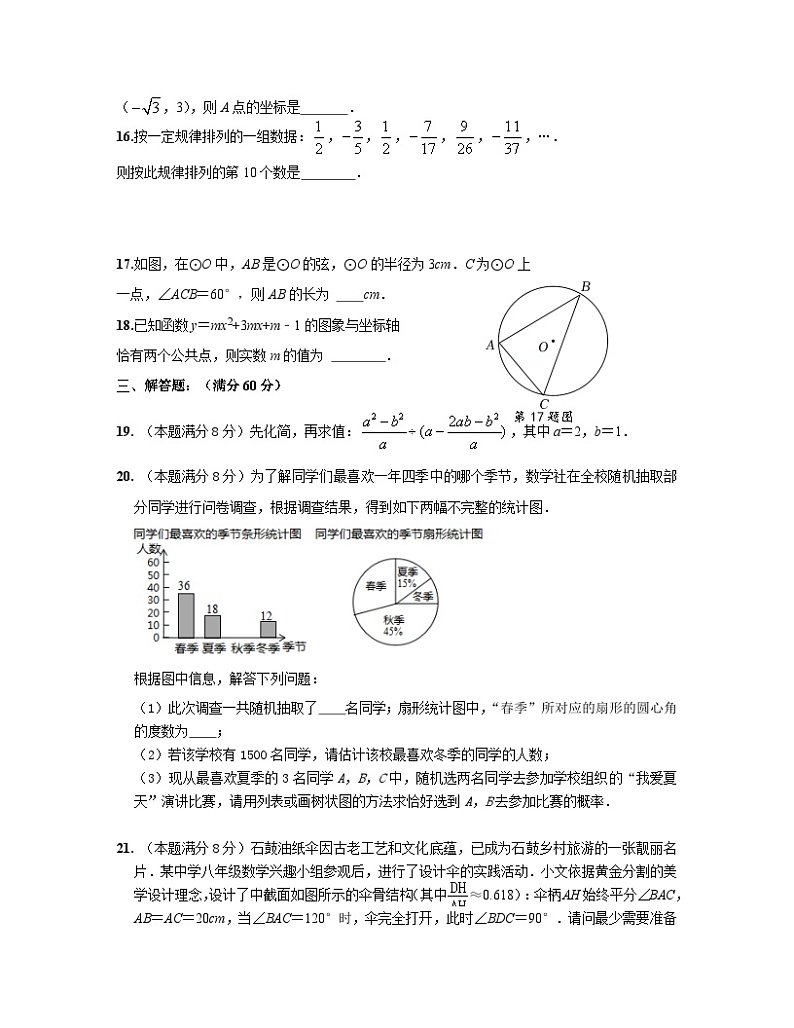 (−√3,3),则A点的坐标是______.
16.按一定规律排列的一组数据:1/2,−3/5,1/2,−7/17,9/26,−11/37,….
则按此规律排列的第10个数是_______.
17.如图,在⊙O中,AB是⊙O的弦,⊙O的半径为3cm.C为⊙O上
一点,∠ACB=60°,则AB的长为 ____cm.
18.已知函数y=mx²+3mx+m﹣1的图象与坐标轴
恰有两个公共点,则实数m的值为 _______.
三、解答题:(满分60分)
A
B
C
O
第17题图
19. (本题满分8分)先化简,再求值:(a²−b²)/a÷(a−(2ab−b²)/a),其中a=2,b=1.
20. (本题满分8分)为了解同学们最喜欢一年四季中的哪个季节,数学社在全校随机抽取部
分同学进行问卷调查,根据调查结果,得到如下两幅不完整的统计图.
同学们最喜欢的季节条形统计图 同学们最喜欢的季节扇形统计图
人数
60
50
40
30
20
10
0
36
18
12
春季 夏季 秋季 冬季 季节
春季
夏季
15%
冬季
秋季
45%
根据图中信息,解答下列问题:
(1)此次调查一共随机抽取了____名同学;扇形统计图中,“春季”所对应的扇形的圆心角
的度数为____;
(2)若该学校有1500名同学,请估计该校最喜欢冬季的同学的人数;
(3)现从最喜欢夏季的3名同学A,B,C中,随机选两名同学去参加学校组织的“我爱夏
天”演讲比赛,请用列表或画树状图的方法求恰好选到A,B去参加比赛的概率.
21. (本题满分8分)石鼓油纸伞因古老工艺和文化底蕴,已成为石鼓乡村旅游的一张靓丽名
片.某中学八年级数学兴趣小组参观后,进行了设计伞的实践活动.小文依据黄金分割的美
学设计理念,设计了中截面如图所示的伞骨结构(其中DH/AH≈0.618):伞柄AH始终平分∠BAC,
AB=AC=20cm,当∠BAC=120°时,伞完全打开,此时∠BDC=90°.请问最少需要准备